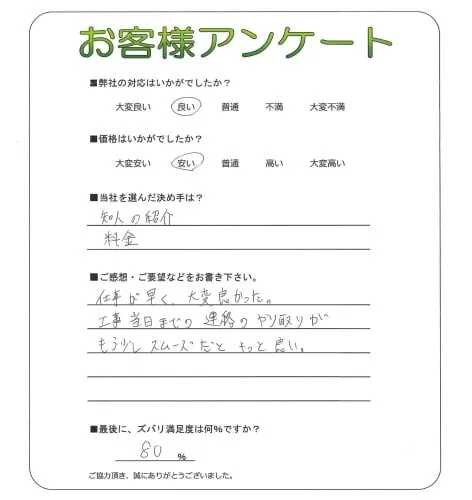 お客様アンケート
■弊社の対応はいかがでしたか？
大変良い 良い 普通 不満 大変不満
■価格はいかがでしたか？
大変安い 安い 普通 高い 大変高い
■当社を選んだ決め手は？
知人の紹介
料金
■ご感想・ご要望などをお書き下さい。
仕事が早く、大変良かった。
工事当日までの連絡のやり取りが
もう少しスムーズだともっと良い。
■最後に、ズバリ満足度は何％ですか？
80 ％
ご協力頂き、誠にありがとうございました。